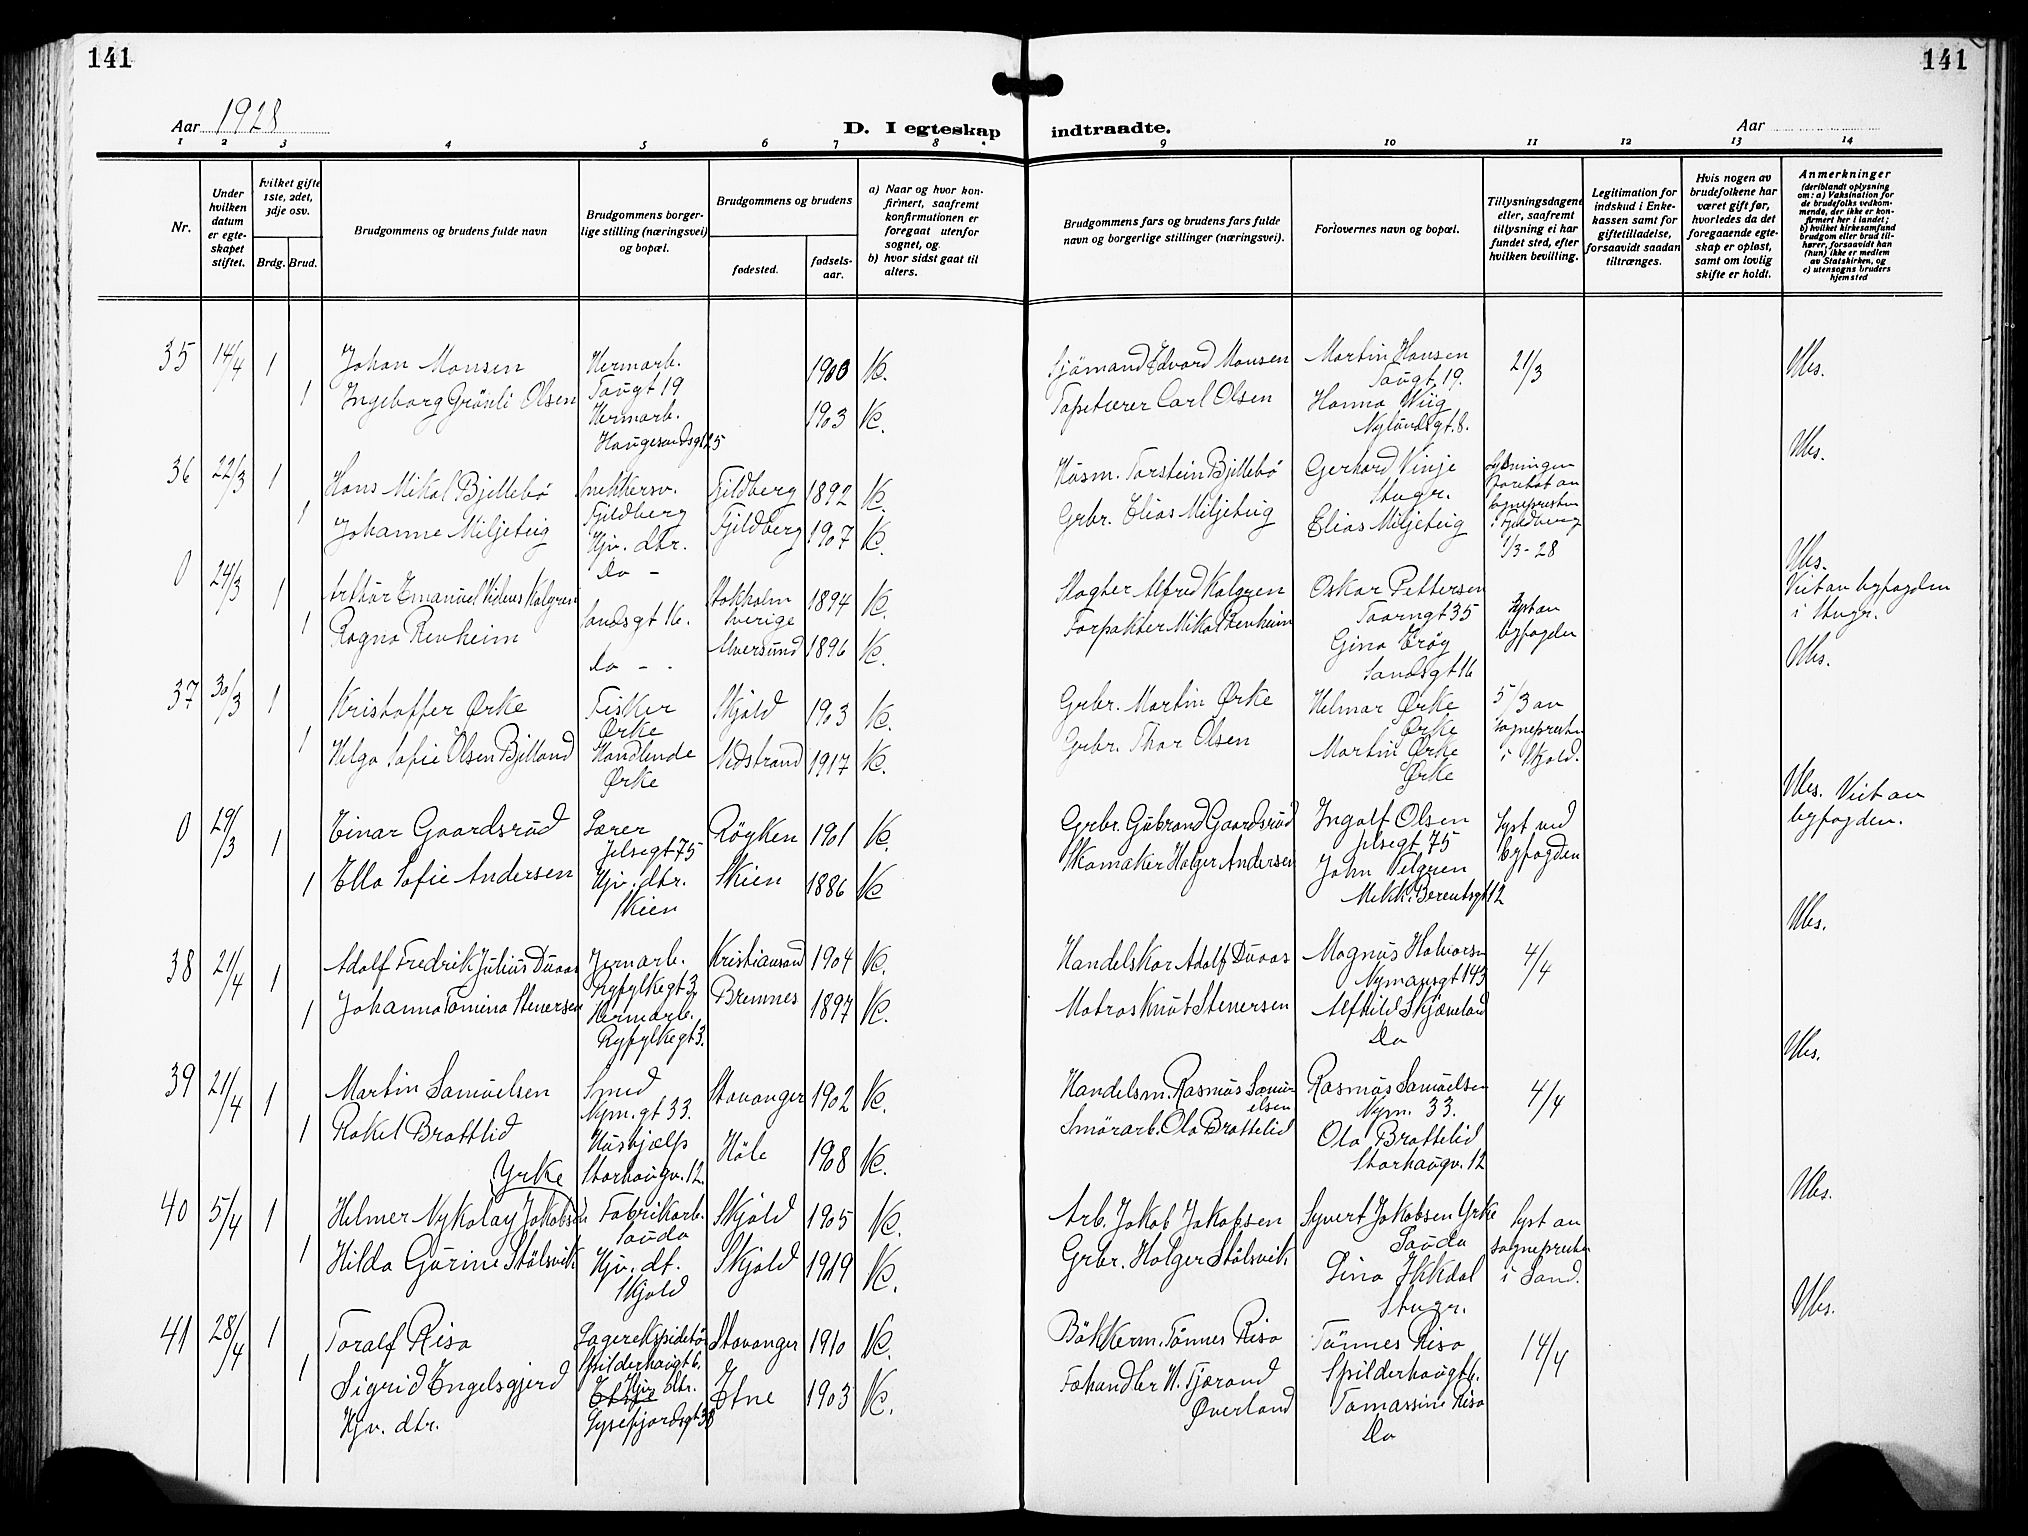 141
141
Aar 1928
D. I egteskap indtraadte.
Aar
1 2 3 4 5 6 7 8 9 10 11 12 13 14
Nr.
Under hvilken datum er egteskapet stiftet.
Hvilket gifte 1ste, 2det, 3dje osv.
Brdg. Brud.
Brudgommens og brudens fulde navn
Brudgommens borgerlige stilling (næringsvei) og bopæl.
Brudgommens og brudens
fødested.
fødselsaar.
a) Naar og hvor konfirmert, saafremt konfirmationen er foregaat utenfor sognet, og
b) hvor sidst gaat til alters.
Brudgommens fars og brudens fars fulde navn og borgerlige stillinger (næringsvei).
Forlovernes navn og bopæl.
Tillysningsdagene eller, saafremt tillysning ei har fundet sted, efter hvilken bevilling.
Legitimation for indskud i Enkekassen samt for giftetilladelse, forsaavidt saadan tiltrænges.
Hvis nogen av brudefolkene har været gift før, hvorledes da det foregaaende egteskap er opløst, samt om lovlig skifte er holdt.
Anmerkninger
(deriblandt oplysning om: a) Vaksination for de brudefolks vedkommende, der ikke er konfirmert her i landet; b) hvilket kirkesamfund brudgom eller brud tilhører, forsaavidt han (hun) ikke er medlem av Statskirken, og c) utensogns bruders hjemsted
35 14/4 1 Johan Monsen Hermarb. Tougt 19 1903 K. Sjømand Edvard Monsen Martin Hansen Tougt. 19. 21/3 Ubs.
1 Ingeborg Grönli Olsen Hermarb. Haugesundsgt 25 1903 K. Tapetserer Carl Olsen Hanna Wiig Nylundsgt. 8.
36 22/3 1 Hans Mikal Bjellebö Snekkersv. Fjeldberg Fjeldberg 1892 K. Husm. Torstein Bjellebö Gerhard Vinje Stvgr. Lysningen foretat av sognepresten i Fjeldberg 1/3-28 Ubs.
1 Johanne Miljeteig Hjv. dtr. Do - Fjeldberg 1907 K. Grbr. Elias Miljeteig Elias Miljeteig
0 24/3 1 Arthur Emanuel Kalgren Sandsgt 16. Stokholm Sverige 1894 K. Slagter Alfred Kalgren Oskar Pettersen Taarngt 35 Lyst av byfogden Ubs. Viet av byfogden i Stvgr.
1 Ragna Revheim Do - . Alversund 1896 K. Forpakter Mikal Revheim Gina Erøy Sandsgt 16
37 30/3 1 Kristoffer Ørke Fisker Ørke Skjold 1903 K. Grbr. Martin Ørke Helmar Ørke Ørke 5/3 av sognepresten i Skjold. Ubs.
1 Helga Sofie Olsen Bjelland Handlende Ørke Nedstrand 1917 K. Grbr. Thor Olsen Martin Ørke Ørke
0 29/3 1 Einar Gaardsrud Lærer Jelsegt 75 Røyken 1901 K. Grbr. Gubrand Gaardsrud Ingolf Olsen Jelsegt 75 Lyst ved byfogden Ubs. Viet av byfogden.
1 Ella Sofie Andersen Hjv. dtr. Skien Skien 1886 K Skomaker Holger Andersen John Velgren Mekk. Berentsgt 12
38 21/4 1 Adolf Fredrik Julius Duaas Jernarb. Ryfylkegt 3. Kristiansand 1904 K. Handelskar Adolf Duaas Magnus Halvorsn Nymansgt 143 4/4 Ubs.
1 Johanna Tomina Stenersen Hermarb. Ryfylkegt 3. Bremnes 1897 K. Matros Knut Stenersen Alfhild Skjæveland Do
39 21/4 1 Martin Samuelsen Smed Nym. gt 33. Stavanger 1902 K. Handelsm. Rasmus Samuelsen Rasmus Samuelsen Nym. 33. 4/4 Ubs.
1 Rakel Brattlid Hushjælp Storhaugv. 12. Høle 1908 K. Smørarb. Ola Brattelid Ola Brattelid Storhaugv. 12
40 5/4 1 Helmer Nykolay Jakobsen Yrke Fabrikarb. Sauda Skjold 1905 K. Arb. Jakob Jakobsen Syvert Jakobsen Yrke Sauda Lyst av sognepresten i Sand. Ubs.
1 Hilda Gurine Stölsvik Hjv. dt. Skjold Skjold 1919 K. Grbr. Holger Stölsvik Lina Ikkdal Stvgr.
41 28/4 1 Toralf Risa Lagerekspeditör Spilderhaugt 6. Stavanger 1910 K. Bökkerm. Tönnes Risa Tönnes Risa Spilderhaugt 6. 14/4 Ubs.
1 Sigrid Engelsgjerd Hjv. dtr. Hjv. dtr. Lysefjordsgt 38 Etne 1903 K. Fæhandler N. Tjærand Øverland Tomassine Risa Do